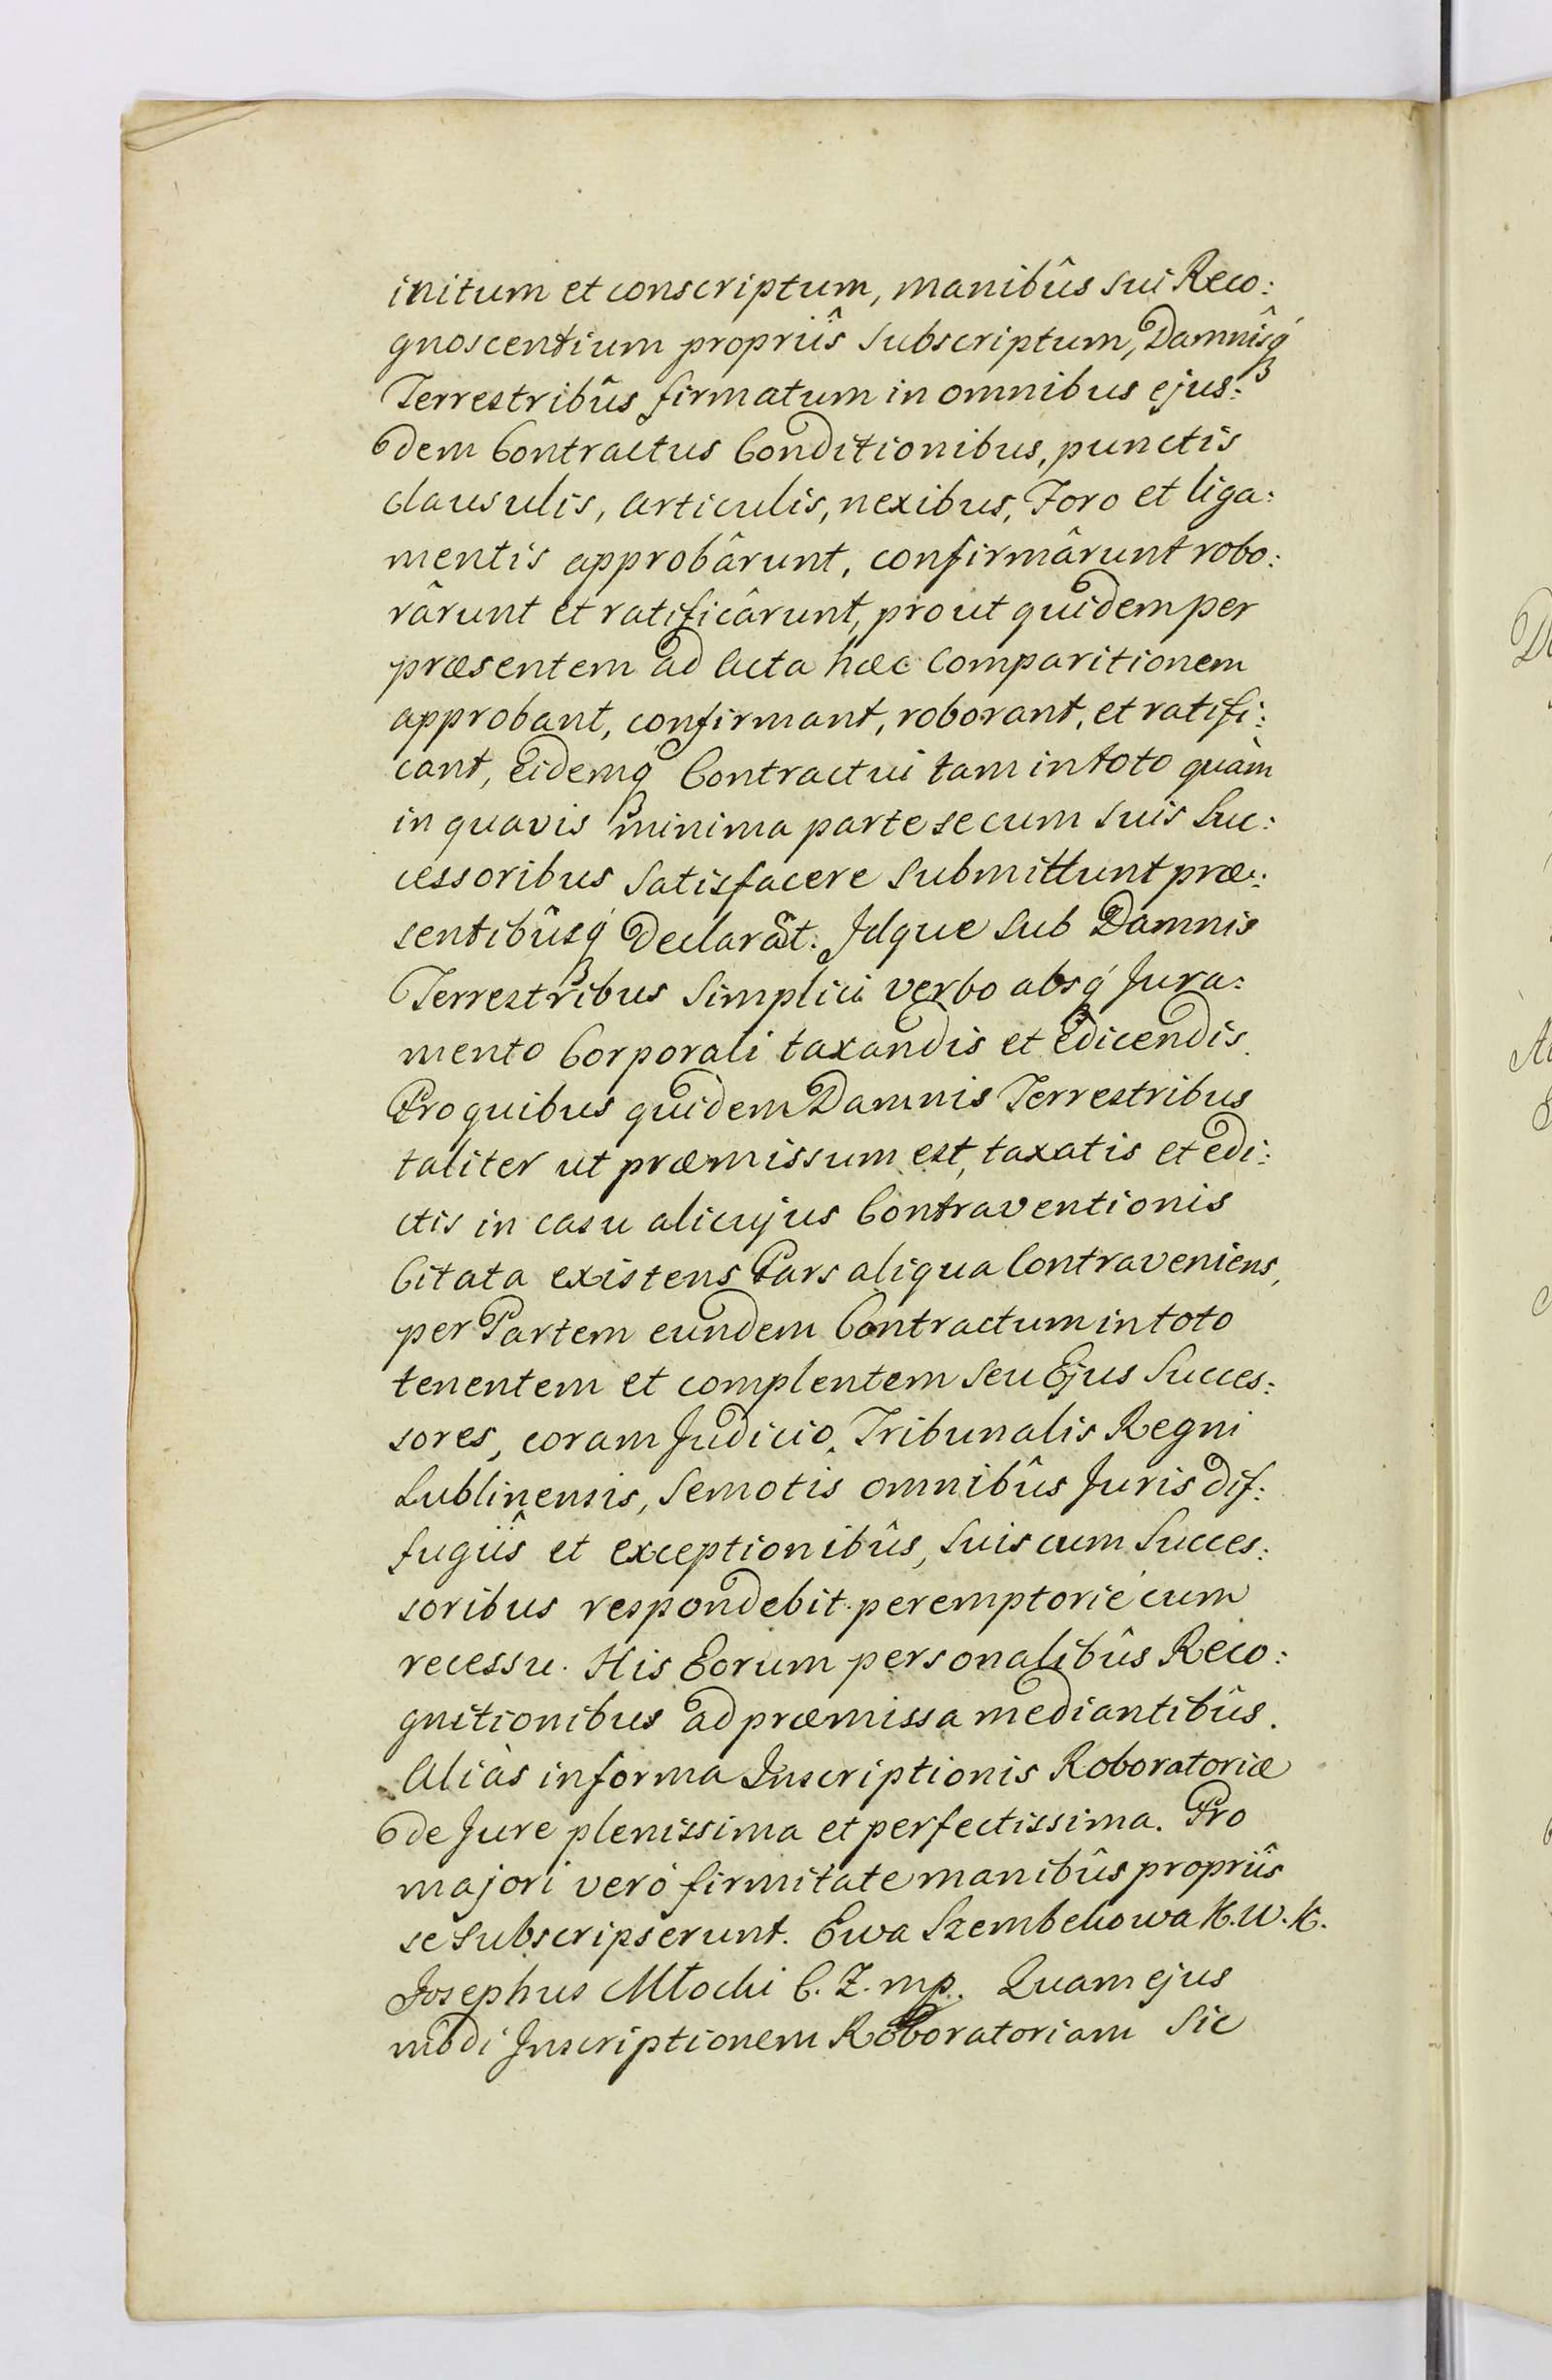 initum et conscriptum, manibûs sui Reco:
gnoscentium propriîs subscriptum, Damnisq́
Terrestribûs firmatum in omnibus ejus:
dem Contractus Conditionibus, punctis
clausulis, articulis, nexibus, Foro et liga:
mentis approbârunt, confirmârunt robo:
rârunt et ratificârunt, prout quidem per
præsentem ad acta hæc Comparitionem
approbant, confirmant, roborant, et ratifi:
cant, Eidemq́ Contractui tam in toto quàm
in quavis minima parte se cum suis Suc:
cessoribus satisfacere submittunt præ:
sentibûsq́ Declarãt. Idque sub Damnis
Terrestribus simplici verbo absq́ Jura:
mento Corporali taxandis et edicendis.
Pro quibus quidem Damnis Terrestribus
taliter ut præmissum est, taxatis et edi:
ctis in casu alicujus Contraventionis
Citata existens Pars aliqua Contraveniens,
per Partem eundem Contractum in toto
tenentem et complentem seu Ejus Succes:
sores, coram Judicio Tribunalis Regni
Lublinensis, semotis omnibûs Juris dif:
fugiîs et exceptionibûs, suis cum Succes:
soribus respondebit peremptorié cum
recessu. His Eorum personalibûs Reco:
gnitionibus ad præmissa mediantibûs.
Aliàs in forma Inscriptionis Roboratoriæ
de Jure plenissima et perfectissima. Pro
majori veró firmitate manibûs propriîs
se subscripserunt. Ewa Szembekowa K. W. K.
Josephus Młocki C. Z. mp. Quam ejus
modi Inscriptionem Roboratoriam sic